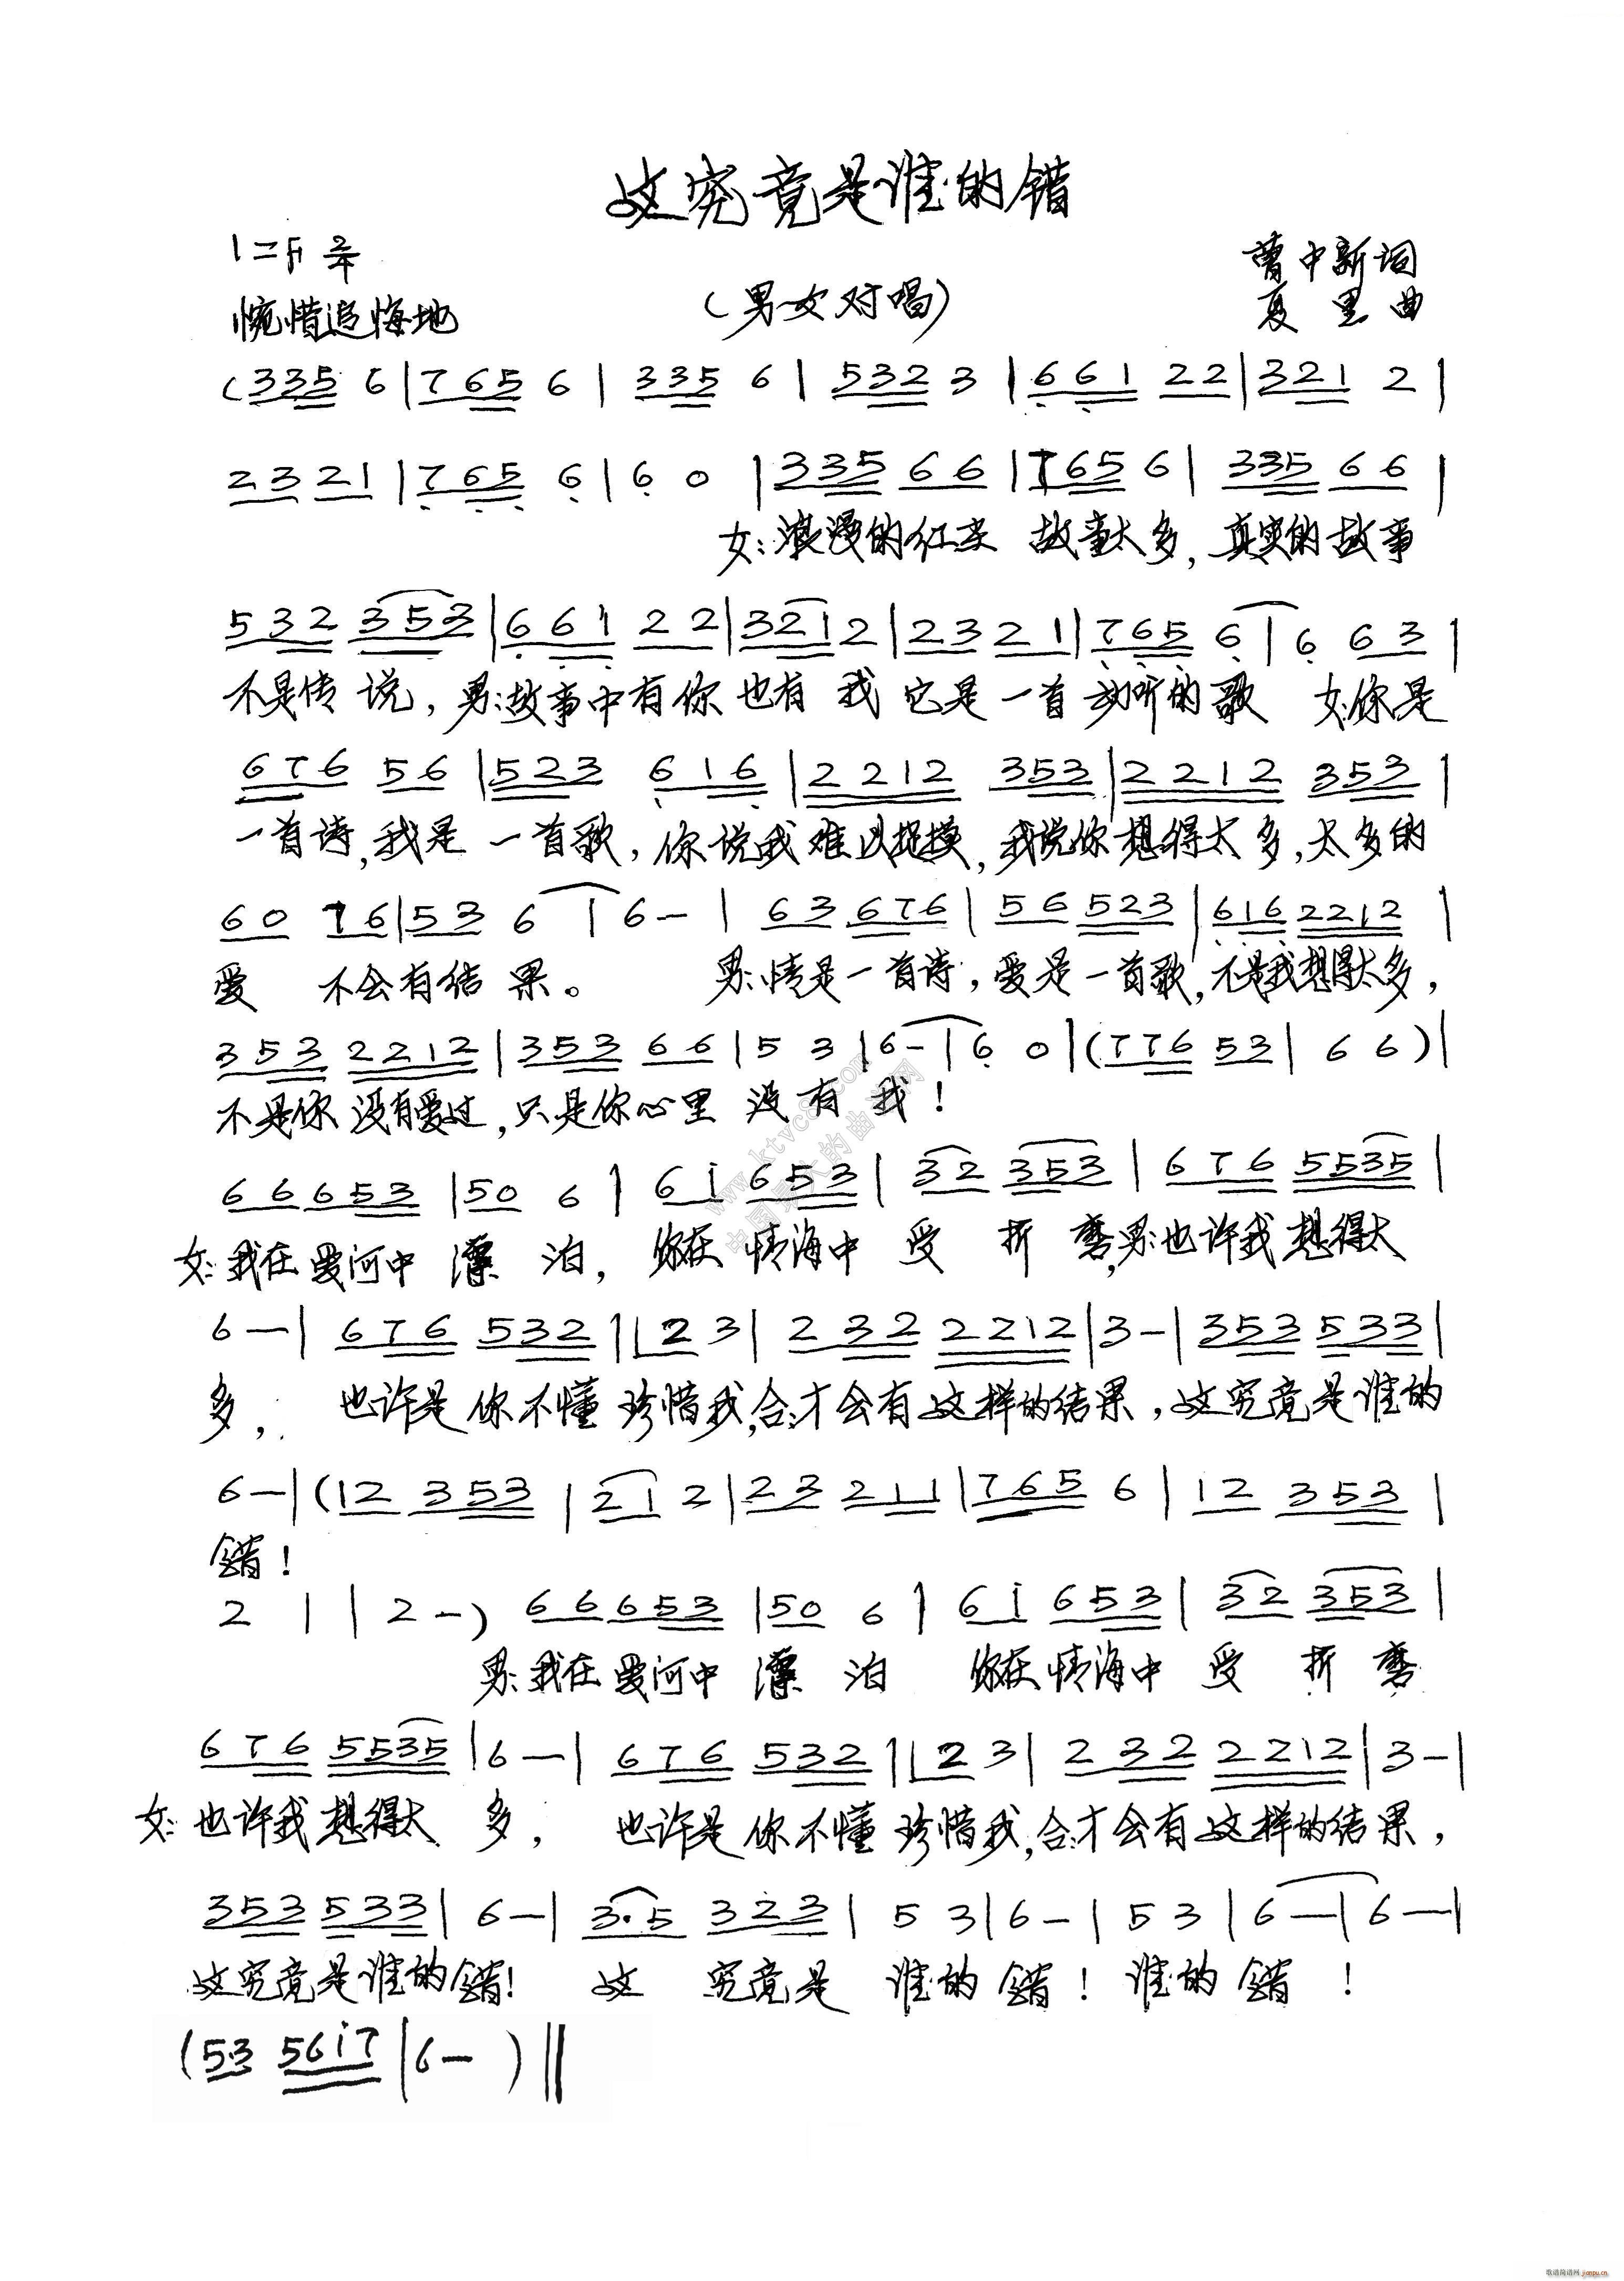 这究竟是谁的错
1=F 2/4
曹中新词
惋惜追悔地
（男女对唱）
夏里曲
(335 6|765 6|335 6|532 3|661 22|321 2|
23 21|765 6|6 0|335 66|765 6|335 66|
女:浪漫的红尘 故事太多,真实的故事
532 353|661 22|321 2|23 21|765 6|6 63|
不是传说,男:故事中有你也有我它是一首动听的歌 女:你是
676 56|523 616|2212 353|2212 353|
一首诗,我是一首歌,你说我难以捉摸,我说你想得太多,太多的
60 76|53 6|6-|63 676|56 523|616 2212|
爱 不会有结果。 男:情是一首诗,爱是一首歌,不是我想得太多,
353 2212|353 66|5 3|6-|6 0|(776 53|6 6)|
不是你没有爱过,只是你心里没有我!
66 653|50 6|6i 653|32 353|676 5535|
女:我在爱河中漂泊,你在情海中受折磨,男:也许我想得太
6-|676 532|12 3|232 2212|3-|353 533|
多,也许是你不懂珍惜我,合:才会有这样的结果,这究竟是谁的
6-|(12 353|21 2|23 211|765 6|12 353|
错!
2 1|2-)66 653|50 6|6i 653|32 353|
男:我在爱河中漂泊 你在情海中受折磨
676 5535|6-|676 532|12 3|232 2212|3-|
女:也许我想得太多,也许是你不懂珍惜我,合:才会有这样的结果,
353 533|6-|3·5 323|5 3|6-|5 3|6-|6-|
这究竟是谁的错! 这究竟是谁的错!谁的错!
(53 56i7|6-)‖
www.ktvc8.com
中国最大的曲谱网
歌谱简谱网 jianpu.cn